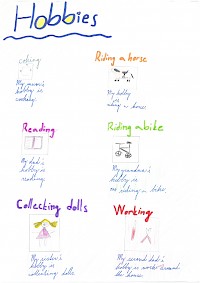 Hobbies
Riding a horse
My mum's
hobby is
cooking.
My hobby
is
riding a horse.
Reading
Riding a bike
My dad's
hobby is
reading.
My grandma's
hobby is
riding a bike.
Collecting dolls
Working
My sister's
hobby is
collecting dolls.
My second dad's
hobby is work around
the house.